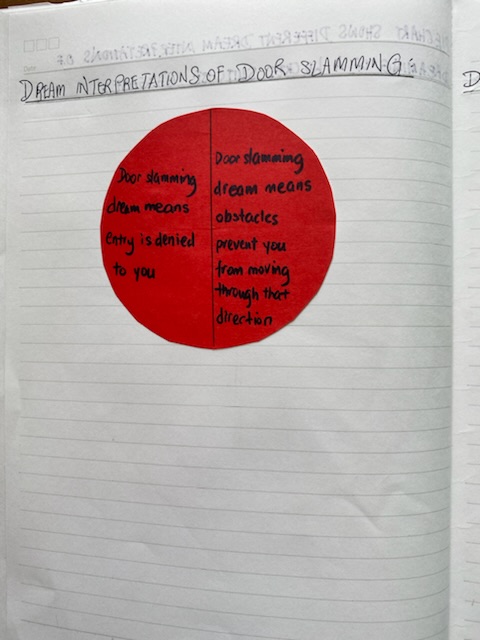 DREAM INTERPRETATIONS OF DOOR SLAMMING:
Door slamming
dream means
entry is denied
to you
Door slamming
dream means
obstacles
prevent you
from moving
through that
direction
D